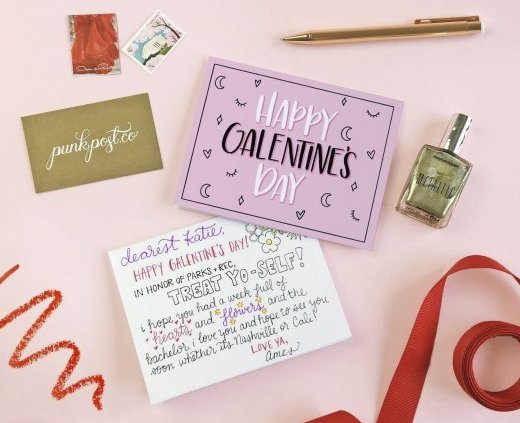 punkpost.co
HAPPY
GALENTINE'S
DAY
METALLIC
dearest Katie,
HAPPY GALENTINE'S DAY!
IN HONOR OF PARKS + REC,
TREAT YO-SELF!
i hope you had a week full of
hearts and flowers and the
bachelor. i love you and hope to see you
soon whether it's Nashville or Cali!
LOVE YA,
Ames